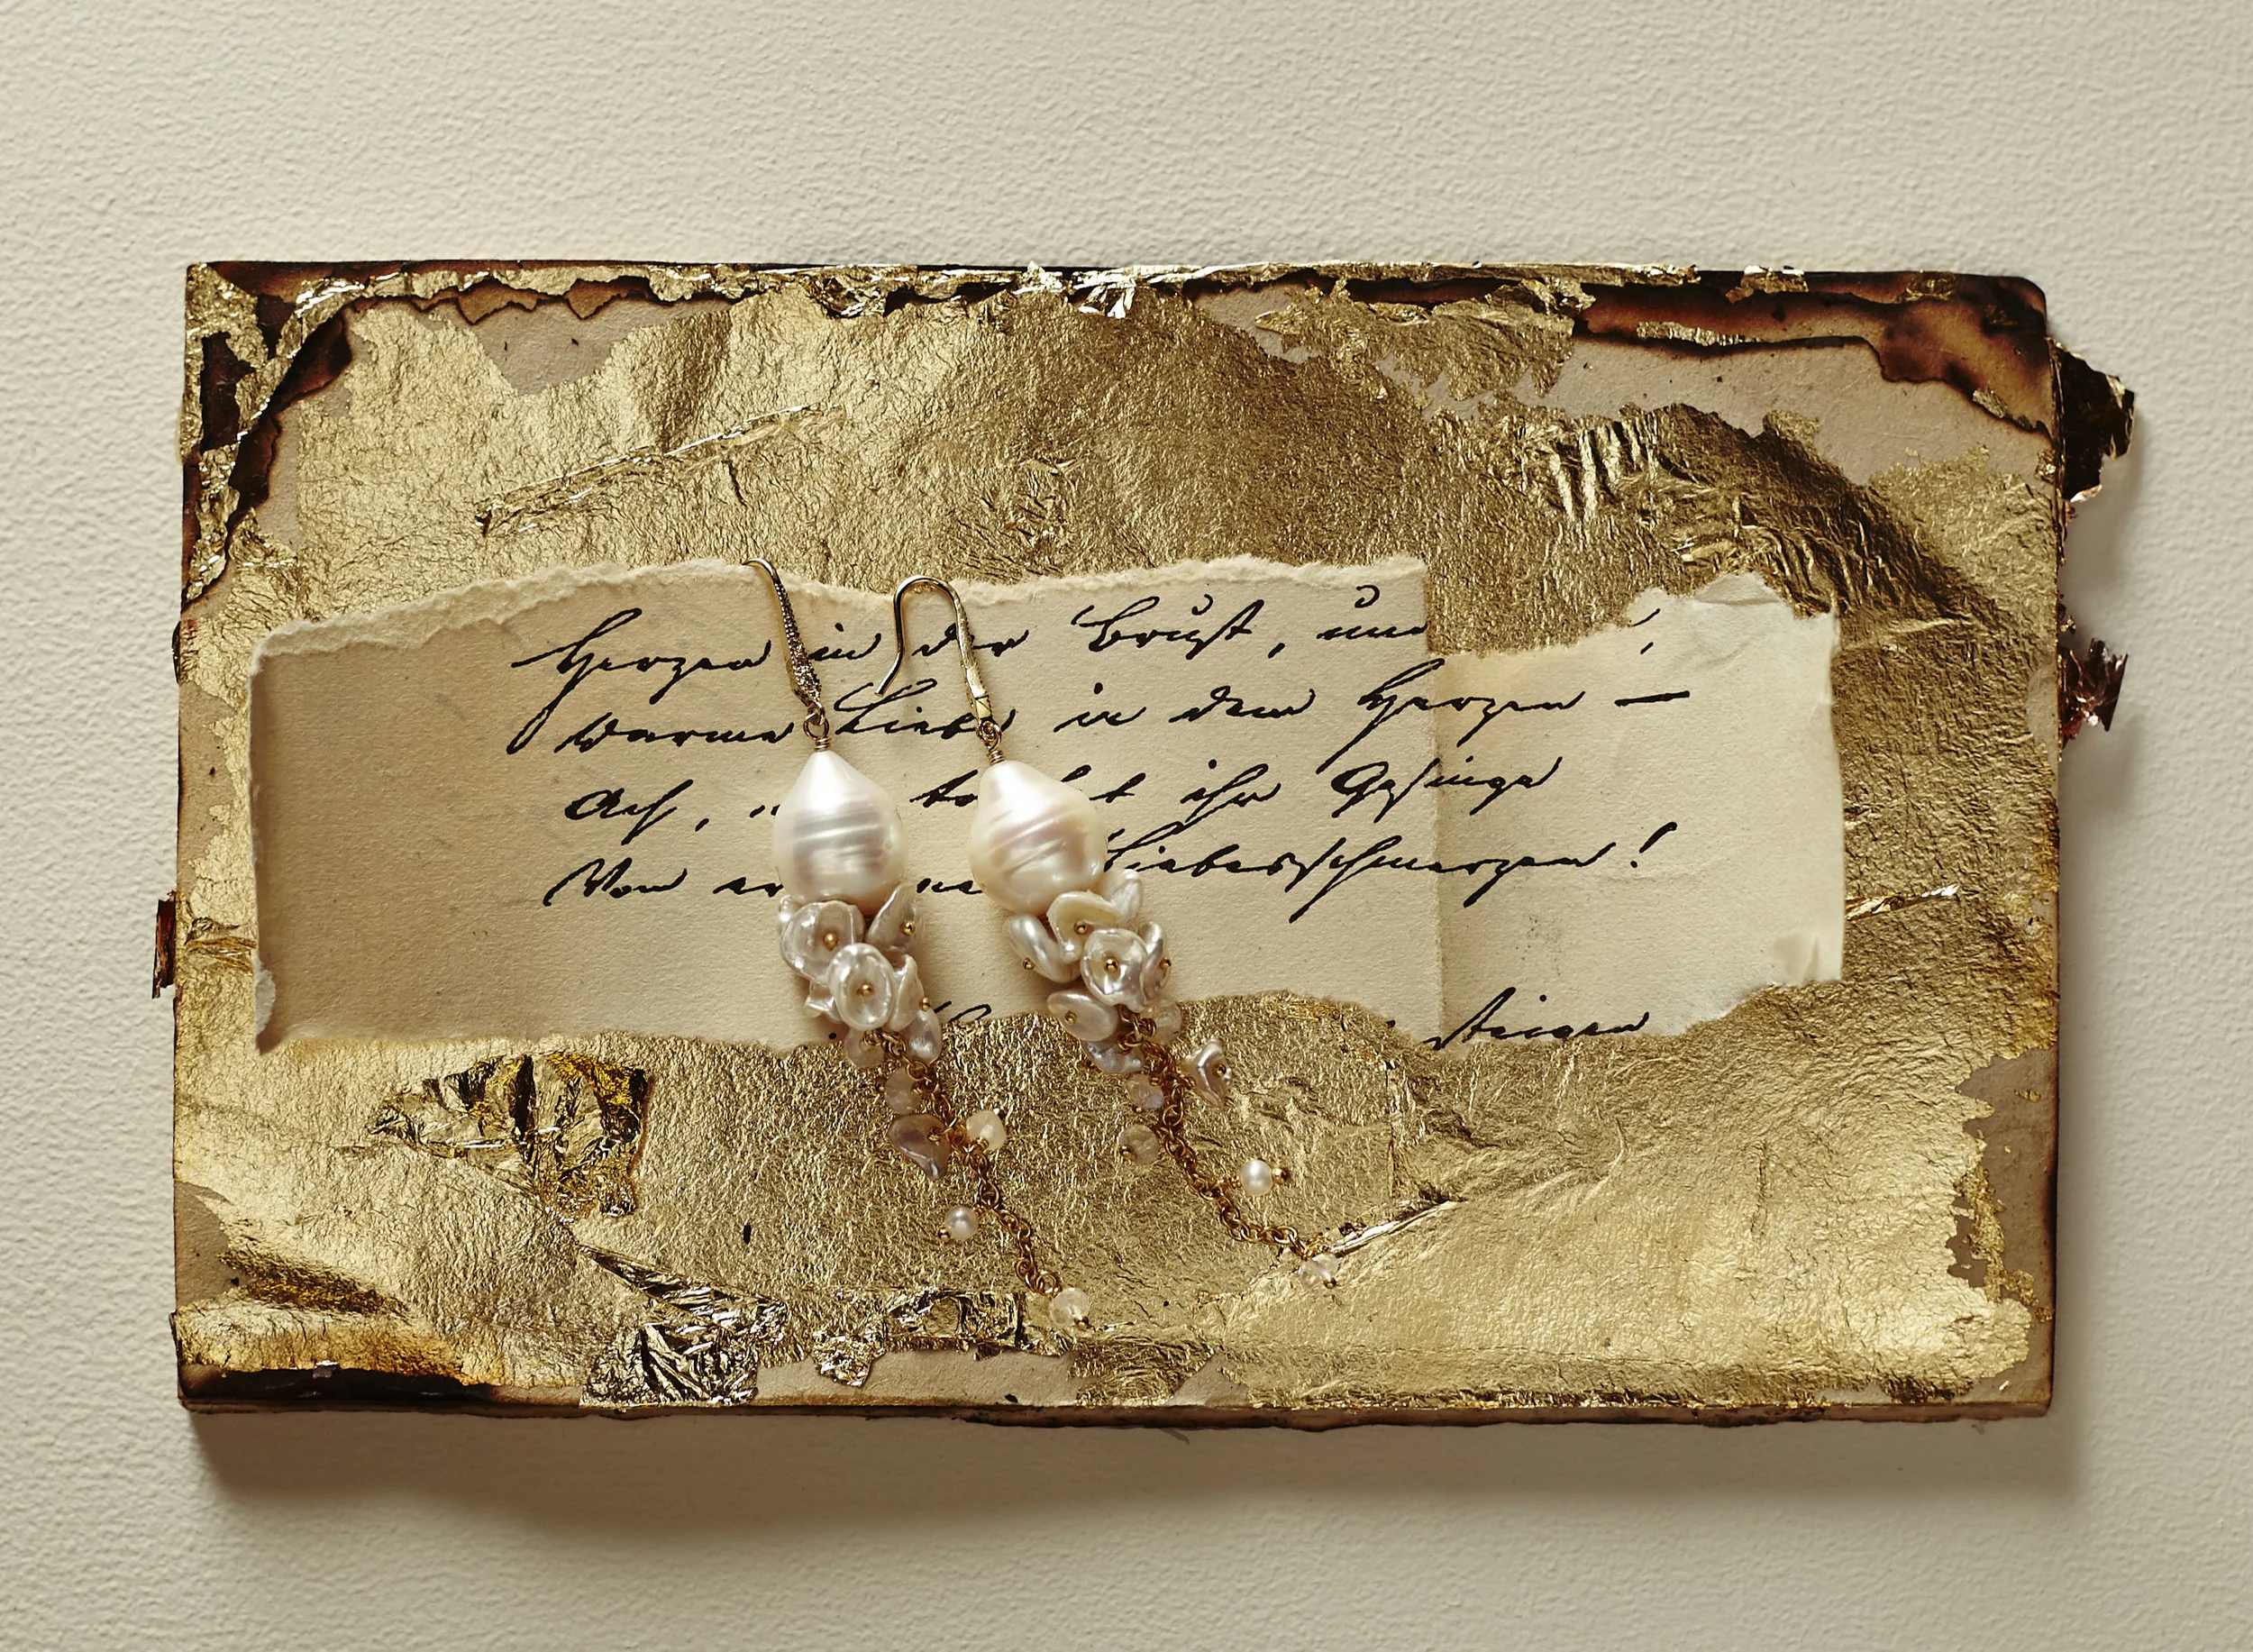 Herzen in der Brust, und
Warme Liebe in dem Herzen —
Ach, t ihr Gesinge
Von Liebesschmerzen!
steigen